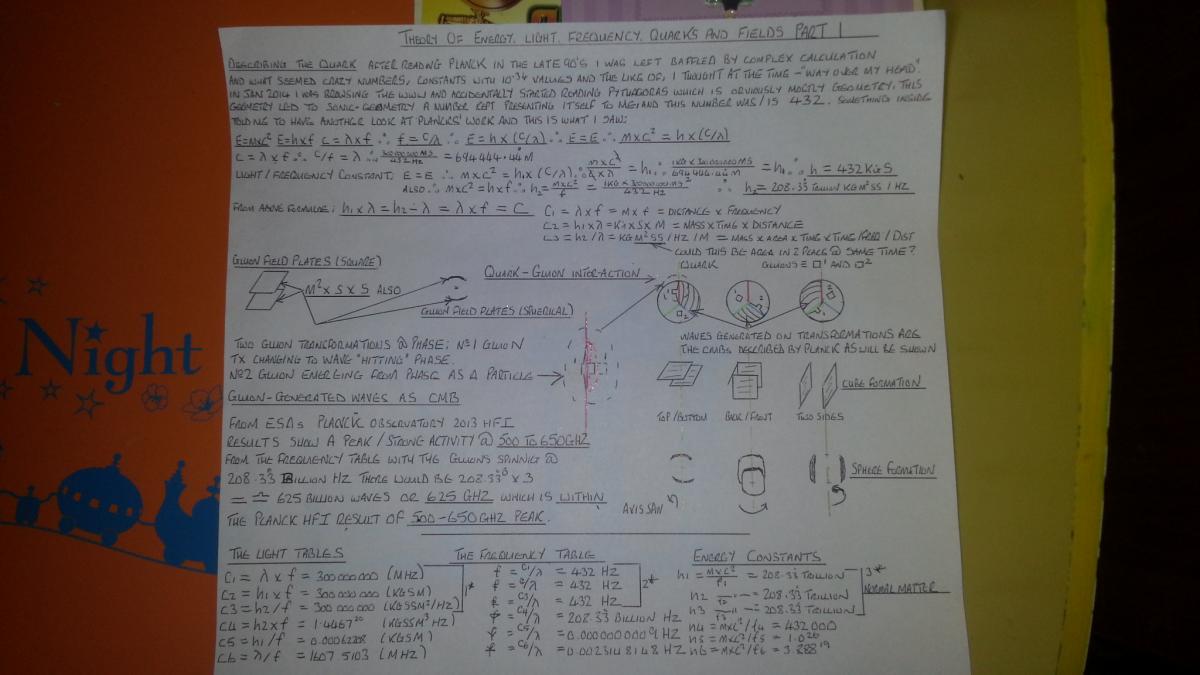 THEORY OF ENERGY, LIGHT, FREQUENCY, QUARKS AND FIELDS PART 1
DESCRIBING THE QUARK AFTER READNG PLANCK IN THE LATE 90'S I WAS LEFT BAFFLED BY COMPLEX CALCULATION
AND WHAT SEEMED CRAZY NUMBERS, CONSTANTS WITH 10-34 VALUES AND THE LIKE OF, I THOUGHT AT THE TIME - "WAY OVER MY HEAD".
IN JAN 2014 I WAS BROWSING THE WWW AND ACCIDENTALLY STARTED READING PYTHAGORAS WHICH IS OBVIOUSLY MOSTLY GEOMETRY, THIS
GEOMETRY LED TO SONIC-GEOMETRY A NUMBER KEPT PRESENTING ITSELF TO ME; AND THIS NUMBER WAS/IS 432. SOMETHING INSIDE
TOLD ME TO HAVE ANOTHER LOOK AT PLANCKS' WORK AND THIS IS WHAT I SAW:
E=MxC² E=hxf C=λxf ∴ f=C/λ ∴ E=hx(C/λ) ∴ E=E ∴ MxC²=hx(C/λ)
C=λxf ∴ C/f=λ ∴ 300000000MS/432HZ = 694444.44M
LIGHT/FREQUENCY CONSTANT: E=E ∴ MxC²=h1x(C/λ) = h1 ∴ = h1 ∴ h = 432KGS
ALSO ∴ MxC²=hxf ∴ h2=MxC²/f = ∴ h2 = 208.33 TRILLION KGM²SS/HZ
FROM ABOVE FORMULAE; h1xλ = h2÷λ = λxf = C
C1 = λxf = Mxf = DISTANCE x FREQUENCY
C2 = h1xλ = KGxSxM = MASS x TIME x DISTANCE
C3 = h2/λ = KGM²SS/HZ/M = MASS x AREA x TIME x TIME/FREQ/DIST
COULD THIS BE AREA IN 2 PLACE @ SAME TIME?
GLUON FIELD PLATES (SQUARE)
QUARK-GLUON INTER-ACTION
QUARK
GLUONS ≡ □1 AND □2
M²xSxS ALSO
GLUON FIELD PLATES (SPHERICAL)
TWO GLUON TRANSFORMATIONS @ PHASE: Nº1 GLUON
TX CHANGING TO WAVE "HITTING" PHASE.
Nº2 GLUON EMERGING FROM PHASE AS A PARTICLE
WAVES GENERATED ON TRANSFORMATIONS ARE
THE CMBS DESCRIBED BY PLANCK AS WILL BE SHOWN
CUBE FORMATION
GLUON-GENERATED WAVES AS CMB
TOP/BOTTOM
BACK/FRONT
TWO SIDES
FROM ESAs PLANCK OBSERVATORY 2013 HFI
RESULTS SHOW A PEAK/STRONG ACTIVITY @ 500 TO 650GHZ
FROM THE FREQUENCY TABLE WITH THE GLUONS SPINNIG @
208.33 BILLION HZ THERE WOULD BE 208.33 x 3
= 625 BILLION WAVES OR 625 GHZ WHICH IS WITHIN
THE PLANCK HFI RESULT OF 500-650GHZ PEAK.
SPHERE FORMATION
Night
THE LIGHT TABLES
C1 = λxf = 300000000 (MHZ)
C2 = h1xf = 300000000 (KGSM)
C3 = h2/f = 300 000000 (KGSSM²/HZ)
1*
C4 = h2xf = 1.4467²⁰ (KGSSM³HZ)
C5 = h1/f = (KGSM)
C6 = λ/f = 1607.5103 (MHZ)
THE FREQUENCY TABLE
f = C1/λ = 432 HZ
f = C2/λ = 432 HZ
f = C3/λ = 432 HZ
2*
f = C4/λ = 208.33 BILLION HZ
f = C5/λ = HZ
f = C6/λ = 0.0023148148 HZ
ENERGY CONSTANTS
h1 = MxC²/f1 = 208.33 TRILLION
h2 = 208.33 TRILLION
h3 = 208.33 TRILLION
3*
NORMAL MATTER
h4 = MxC²/f4 = 432000
h5 = MxC²/f5 =
h6 = MxC²/f6 = 3.888¹⁹